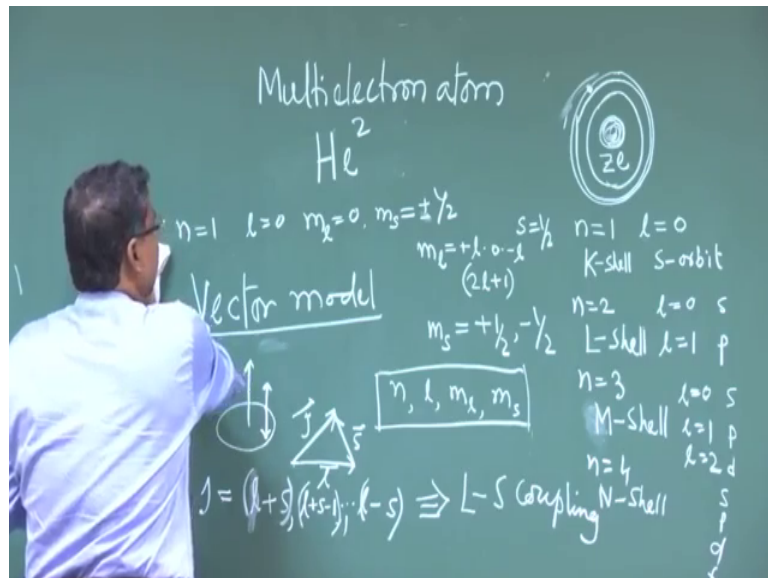 Multielectron atom
He²
ze
n=1 l=0 mₗ=0, mₛ=±1/2
mₗ=+l..0..-l
(2l+1)
s=1/2
mₛ=+1/2,-1/2
Vector model
n, l, mₗ, mₛ
J⃗ s⃗
l⃗
J = (l+s),(l+s-1);..(l-s) ⇒ L-S Coupling
n=1 l=0
K-shell S-orbit
n=2 l=0 s
L-Shell l=1 p
n=3 l=0 s
M-Shell l=1 p
l=2 d
n=4
N-Shell s
p
d